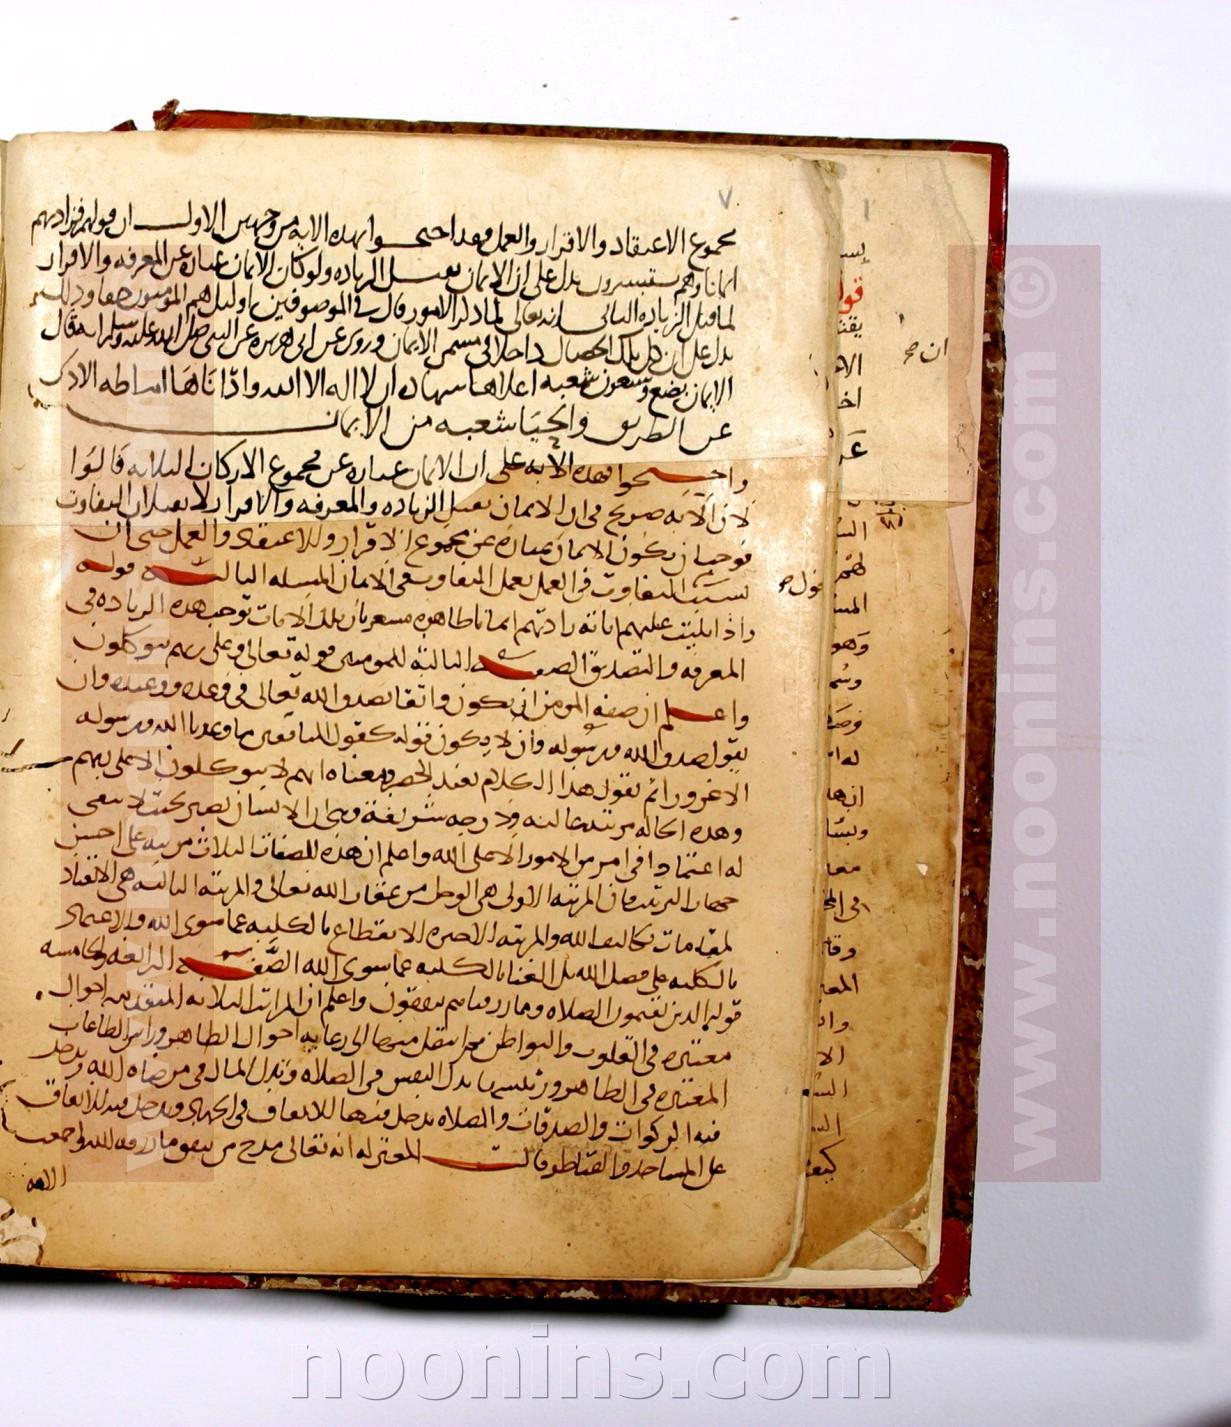 ٧
مجموع الاعتقاد والاقرار والعمل وقد احتجوا بهذه الايه من وجهين الاول ان قوله فزادتهم
ايمانا وهم يستبشرون يدل على ان الايمان يقبل الزياده ولو كان الايمان عباره عن المعرفه والاقرار
لما قبل الزياده الثاني انه تعالى لما ذكر الامور قال في الموصوفين بها اوليك هم المومنون حقا وذلك
يدل على ان كل تلك الخصال داخله في مسمى الايمان وروي عن ابي هريره عن النبي صلى الله عليه وسلم انه قال
الايمان بضع وسبعون شعبه اعلاها شهاده ان لا اله الا الله وادناها اماطه الاذى
عن الطريق والحيا شعبه من الايمان
واحتجوا بهذه الايه على ان الايمان عباره عن مجموع الاركان الثلاثه قالوا
لان الآيه صريح في ان الايمان يقبل الزياده والمعرفه والاقرار لا يقبلان التفاوت
فوجب ان يكون الايمان عباره عن مجموع الاقرار والاعتقاد والعمل حتى ان
بسبب التفاوت في العمل يحصل التفاوت في الايمان المسله الثالثه قوله
واذا تليت عليهم اياته زادتهم ايمانا ظاهره مشعر بان تلك الايات توجب هذه الزياده في
المعرفه والتصديق الصفه الثالثه للمومنين قوله تعالى وعلى ربهم يتوكلون
واعلم ان صفه المومن ان يكون واثقا بصدق الله تعالى في وعده ووعيده وان
يقول صدق الله ورسوله وان لا يكون قوله كقول المنافقين ما وعدنا الله ورسوله
الا غرورا ثم نقول هذا الكلام يفيد الحصر ومعناه انهم لا يتوكلون الا على ربهم
وهذه الحاله مرتبه عاليه ودرجه شريفة وهي ان الانسان يصير بحيث لا يبقى
له اعتماد في امر من الامور الا على الله واعلم ان هذه الصفات الثلاث مرتبه على احسن
جهات الترتيب فان المرتبه الاولى هي الوجل من عقاب الله تعالى والمرتبه الثانيه هي الانقياد
لمقامات تكاليف الله والمرتبه الاخيره الانقطاع بالكليه عما سوى الله والاعتماد
بالكليه على فضل الله بل الغنا بالكليه عما سوى الله الصفه الرابعه والخامسه
قوله الذين يقيمون الصلاه ومما رزقناهم ينفقون واعلم ان المراتب الثلاثه المتقدمه احوال
معتبره في القلوب والبواطن ثم انتقل منها الى رعايه احوال الظاهر وراس الطاعات
المعتبره في الظاهر ورئيسها بذل النفس في الصلاه وبذل المال في مرضاه الله ويدخل
فيه الزكوات والصدقات والصلاه يدخل فيها الانفاق في الجهاد ويدخل فيه الانفاق
على المساجد والقناطر قالت المعتزله انه تعالى مدح من ينفق مما رزقه الله
الامه
ان صح
قول صح
١
www.noonins.com ©
noonins.com